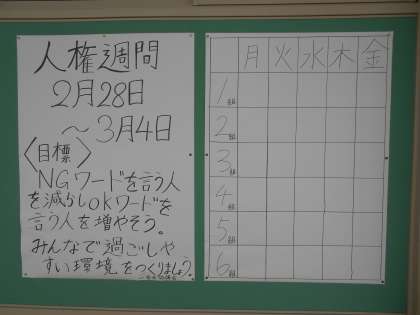 人権週間
2月28日
~3月4日
<目標>
NGワードを言う人
を減らしOKワードを
言う人を増やそう。
みんなで過ごしや
すい環境をつくりましょう。
月 火 水 木 金
1組
2組
3組
4組
5組
6組